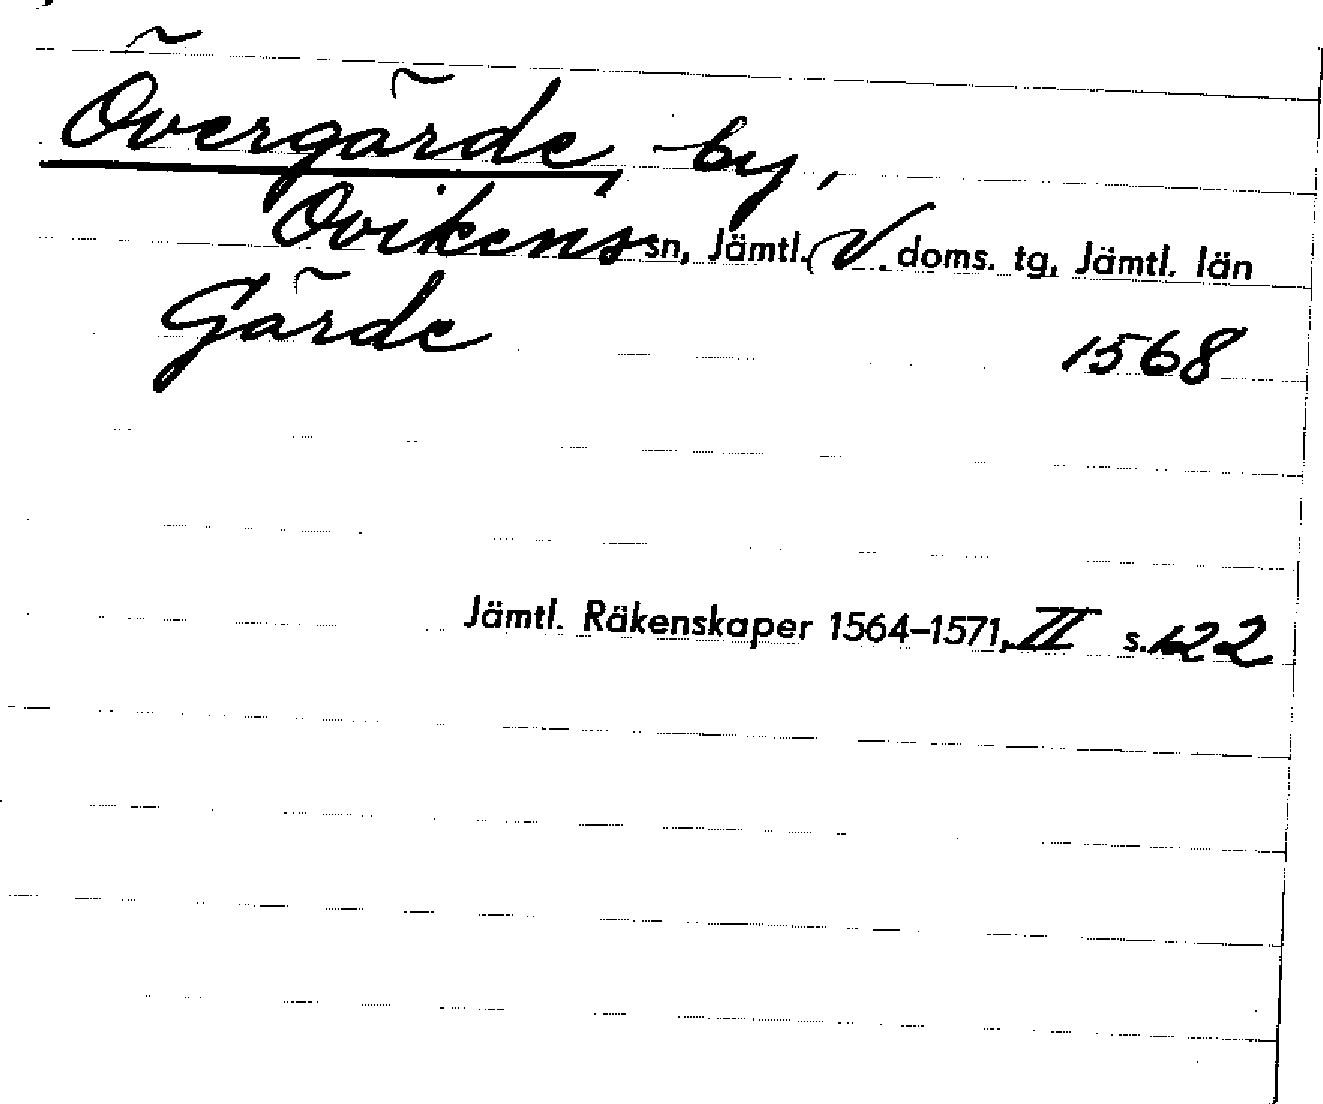 Övergärde, by,
Ovikens sn, Jämtl. V. doms. tg, Jämtl. län
Gärde 1568
Jämtl. Räkenskaper 1564–1571, II s. 122